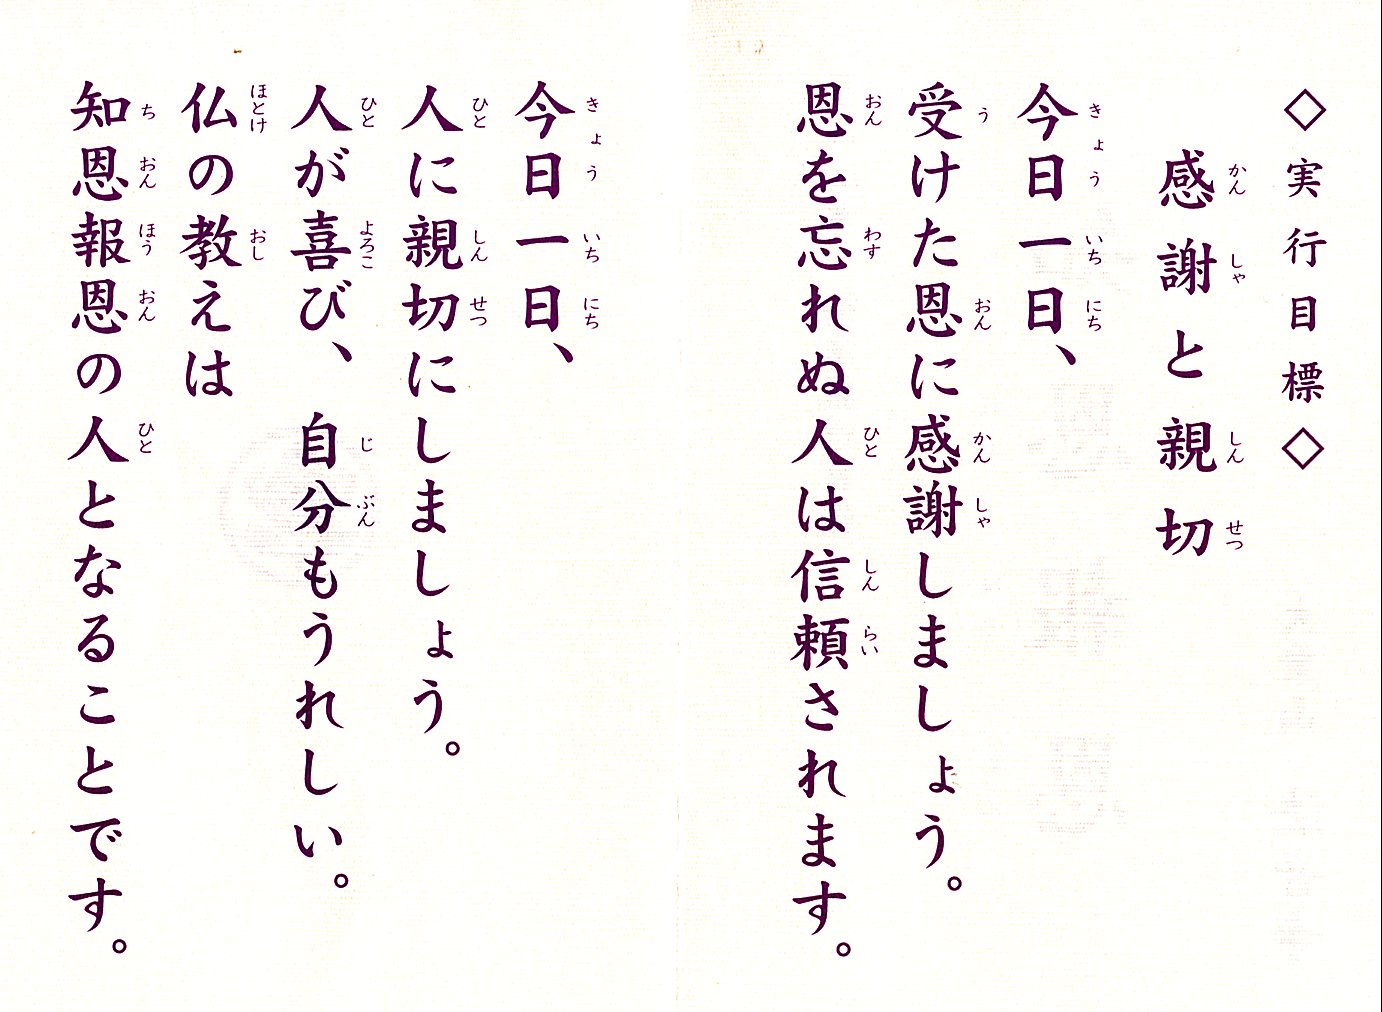 ◇実行目標◇
感謝と親切
今日一日、
受けた恩に感謝しましょう。
恩を忘れぬ人は信頼されます。
今日一日、
人に親切にしましょう。
人が喜び、自分もうれしい。
仏の教えは
知恩報恩の人となることです。